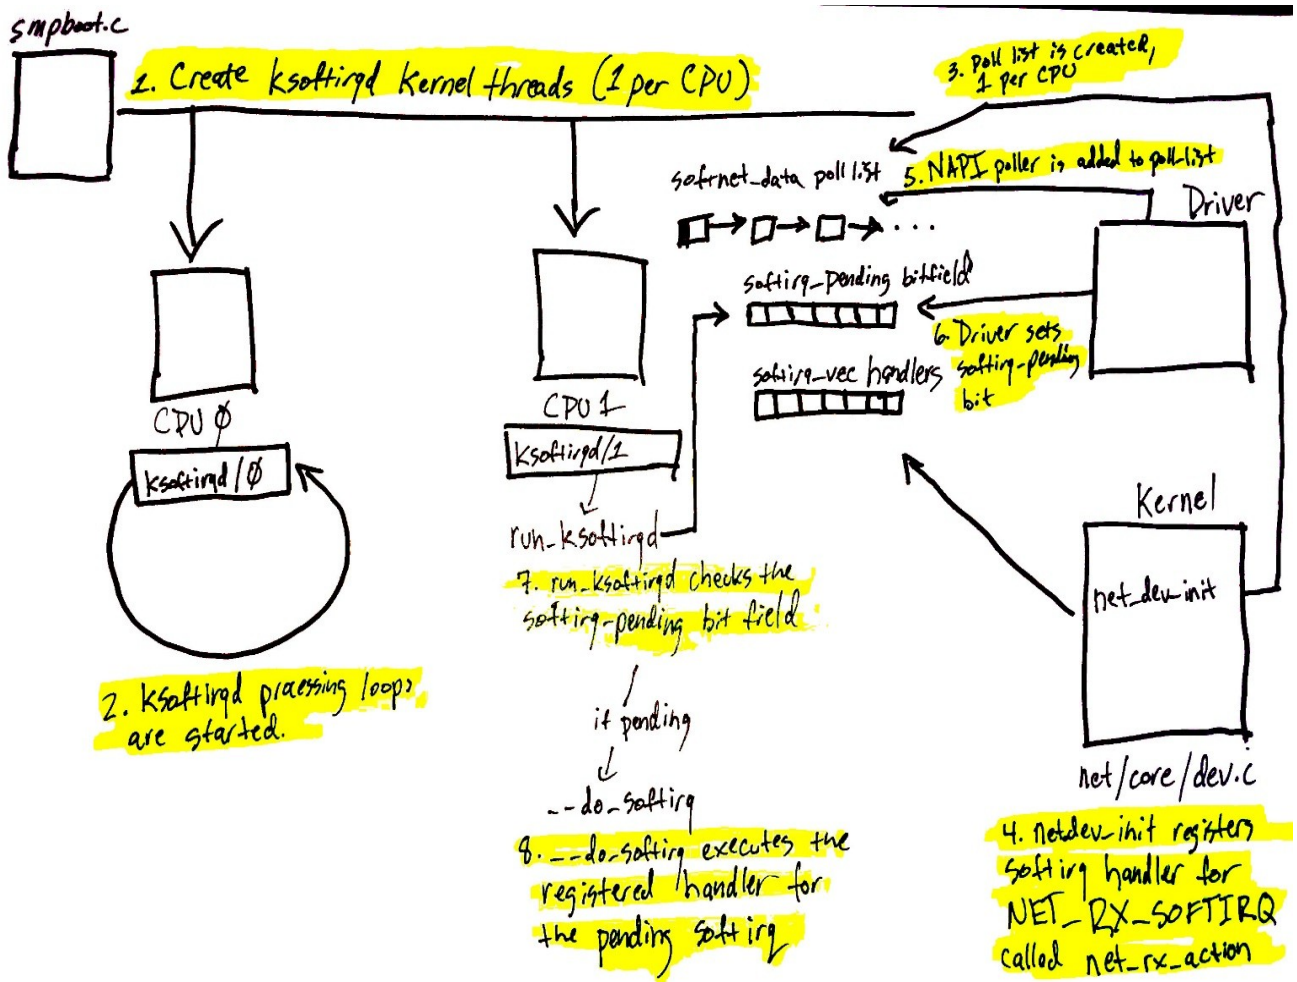 smpboot.c
1. Create ksoftirqd kernel threads (1 per CPU)
3. Poll list is created,
1 per CPU
softnet_data poll list
5. NAPI poller is added to poll-list
Driver
softirq_pending bitfield
6. Driver sets
softirq-pending
bit
softirq_vec handlers
CPU 0
ksoftirqd/0
2. ksoftirqd processing loops
are started.
CPU 1
ksoftirqd/1
run_ksoftirqd
7. run_ksoftirqd checks the
softirq-pending bit field
if pending
__do_softirq
8. __do_softirq executes the
registered handler for
the pending softirq
Kernel
net_dev_init
net/core/dev.c
4. netdev_init registers
softirq handler for
NET_RX_SOFTIRQ
called net_rx_action